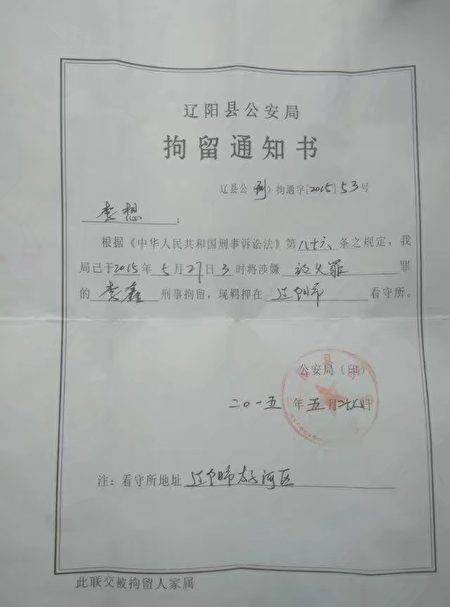 辽阳县公安局
拘留通知书
辽县公(刑)拘通字[2015]53号
李想:
根据《中华人民共和国刑事诉讼法》第八十六条之规定,我
局已于2015年5月27日3时将涉嫌放火罪罪
的李鑫刑事拘留,现羁押在辽阳市看守所。
公安局(印)
二〇一五年五月廿八日
注:看守所地址辽阳市太子河区
此联交被拘留人家属